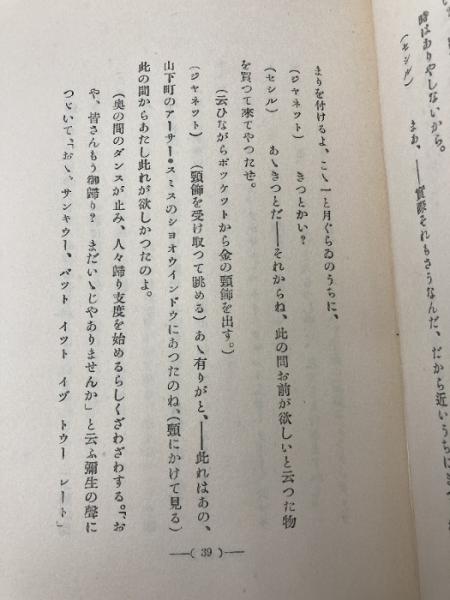 時はありやしないから。
(セシル)　まあ、――實際それもさうなんだ、だから近いうちに
まりを付けるよ、こゝ一と月ぐらゐのうちに、
(ジャネット)　きつとかい？
(セシル)　あゝきつとだ――それからね、此の間お前が欲しいと云つた物
を買つて來てやつたぜ。
(云ひながらポツケツトから金の頸飾を出す。)
(ジャネツト)　(頸飾を受け取つて眺める) あゝ有りがと、――此れはあの、
山下町のアーサー・スミスのショオウインドウにあつたのね、(頸にかけて見る)
此の間からあたし此れが欲しかつたのよ。
(奥の間のダンスが止み、人々歸り支度を始めるらしくざわざわする。「お
や、皆さんもう御歸り？　まだいゝじやありませんか」と云ふ彌生の聲に
つゞいて、「おゝ、サンキウー、バツト　イツト　イヅ　トウー　レート」
―( 39 )―